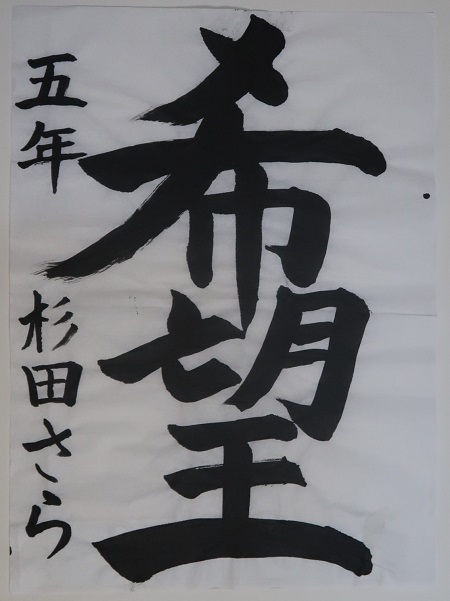 希望
五年 杉田さら